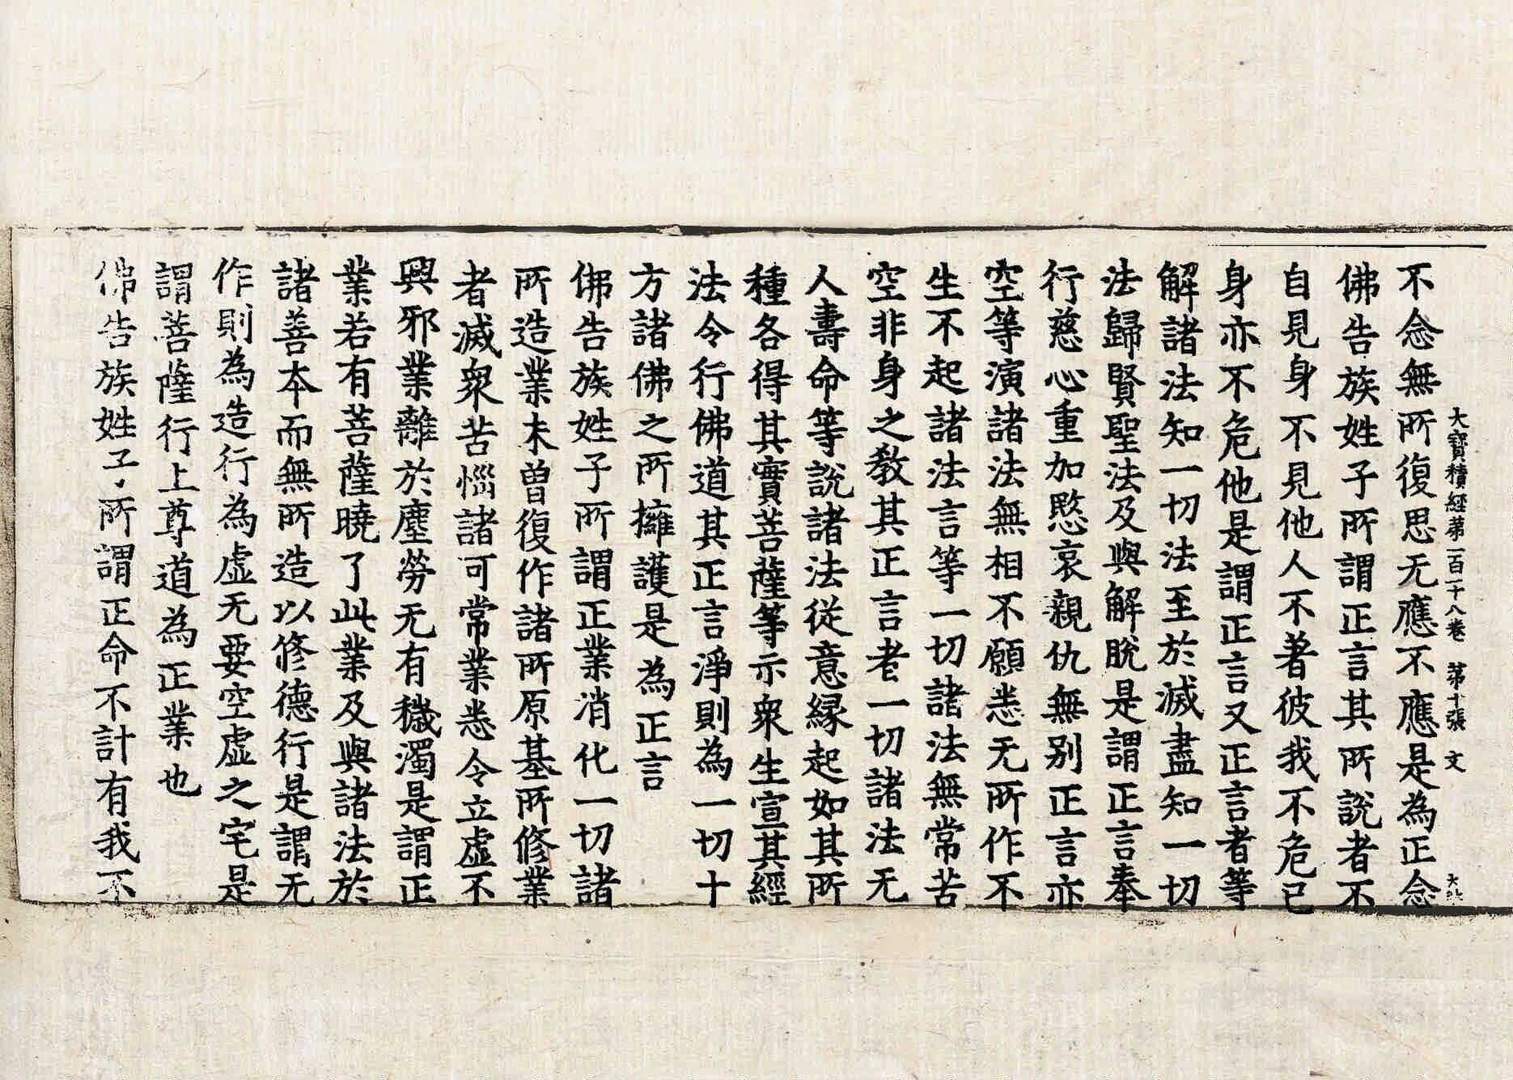 大寶積經第一百十八卷　第十張　文
不念無所復思无應不應是為正念
佛告族姓子所謂正言其所說者不
自見身不見他人不著彼我不危己
身亦不危他是謂正言又正言者等
解諸法知一切法至於滅盡知一切
法歸賢聖法及與解脫是謂正言奉
行慈心重加愍哀親仇無別正言亦
空等演諸法無相不願悉无所作不
生不起諸法言等一切諸法無常苦
空非身之教其正言者一切諸法无
人壽命等說諸法從意緣起如其所
種各得其實菩薩等示衆生宣其經
法令行佛道其正言淨則為一切十
方諸佛之所擁護是為正言
佛告族姓子所謂正業消化一切諸
所造業未曾復作諸所原基所修業
者滅衆苦惱諸可常業悉令立虛不
興邪業離於塵勞无有穢濁是謂正
業若有菩薩曉了此業及與諸法於
諸善本而無所造以修德行是謂无
作則為造行為虛无要空虛之宅是
謂菩薩行上尊道為正業也
佛告族姓子所謂正命不計有我不